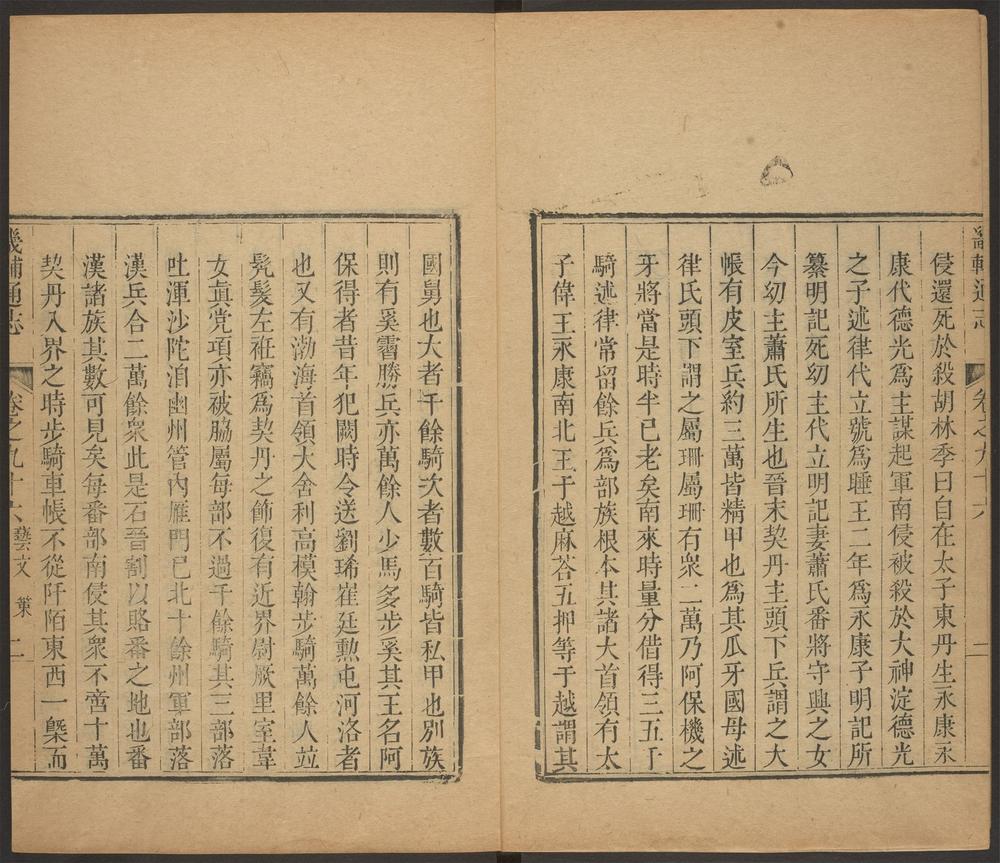 畿輔通志 卷之九十六 一
侵還死於殺胡林季曰自在太子東丹生永康永
康代德光爲主謀起軍南侵被殺於大神淀德光
之子述律代立號爲睡王二年爲永康子明記所
纂明記死幼主代立明記妻蕭氏番將守興之女
今幼主蕭氏所生也晉末契丹主頭下兵謂之大
帳有皮室兵約三萬皆精甲也爲其瓜牙國母述
律氏頭下謂之屬珊屬珊有衆二萬乃阿保機之
牙將當是時半已老矣南來時量分借得三五千
騎述律常留餘兵爲部族根本其諸大首領有太
子偉王永康南北王于越麻荅五押等于越謂其
國舅也大者千餘騎次者數百騎皆私甲也別族
則有奚霫勝兵亦萬餘人少馬多步奚其王名阿
保得者昔年犯闕時令送劉琋崔廷勳屯河洛者
也又有渤海首領大舍利高模翰步騎萬餘人竝
髡髮左袵竊爲契丹之飾復有近界尉厥里室韋
女眞党項亦被脇屬每部不過千餘騎其三部落
吐渾沙陀洎幽州管內雁門已北十餘州軍部落
漢兵合二萬餘衆此是石晉割以賂番之地也番
漢諸族其數可見矣每番部南侵其衆不啻十萬
契丹入界之時步騎車帳不從阡陌東西一槩而
畿輔通志 卷之九十六 藝文 策 二